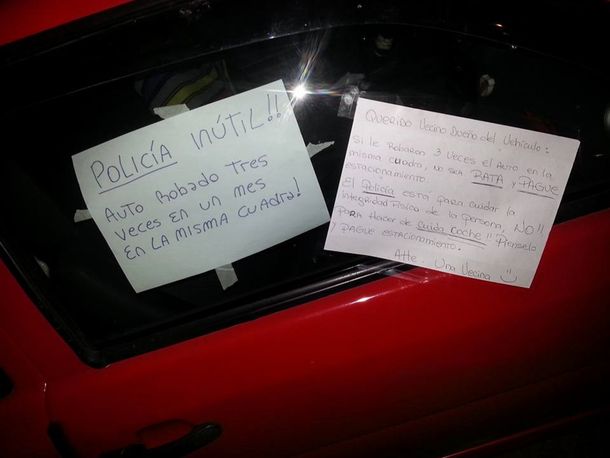 POLICÍA INÚTIL!!
AUTO RObADO TRES
VECES EN UN MES
EN LA MISMA CUADRA!
QUERIDO Vecino Dueño del Vehículo:
Si le Robaron 3 Veces el Auto en la
misma cuadra, no sea RATA y PAGUE
estacionamiento
El Policía está para cuidar la
integridad Física de la persona, NO!!
para Hacer de cuida coche!! Pienselo
y PAGUE estacionamiento.
Atte. Una Vecina